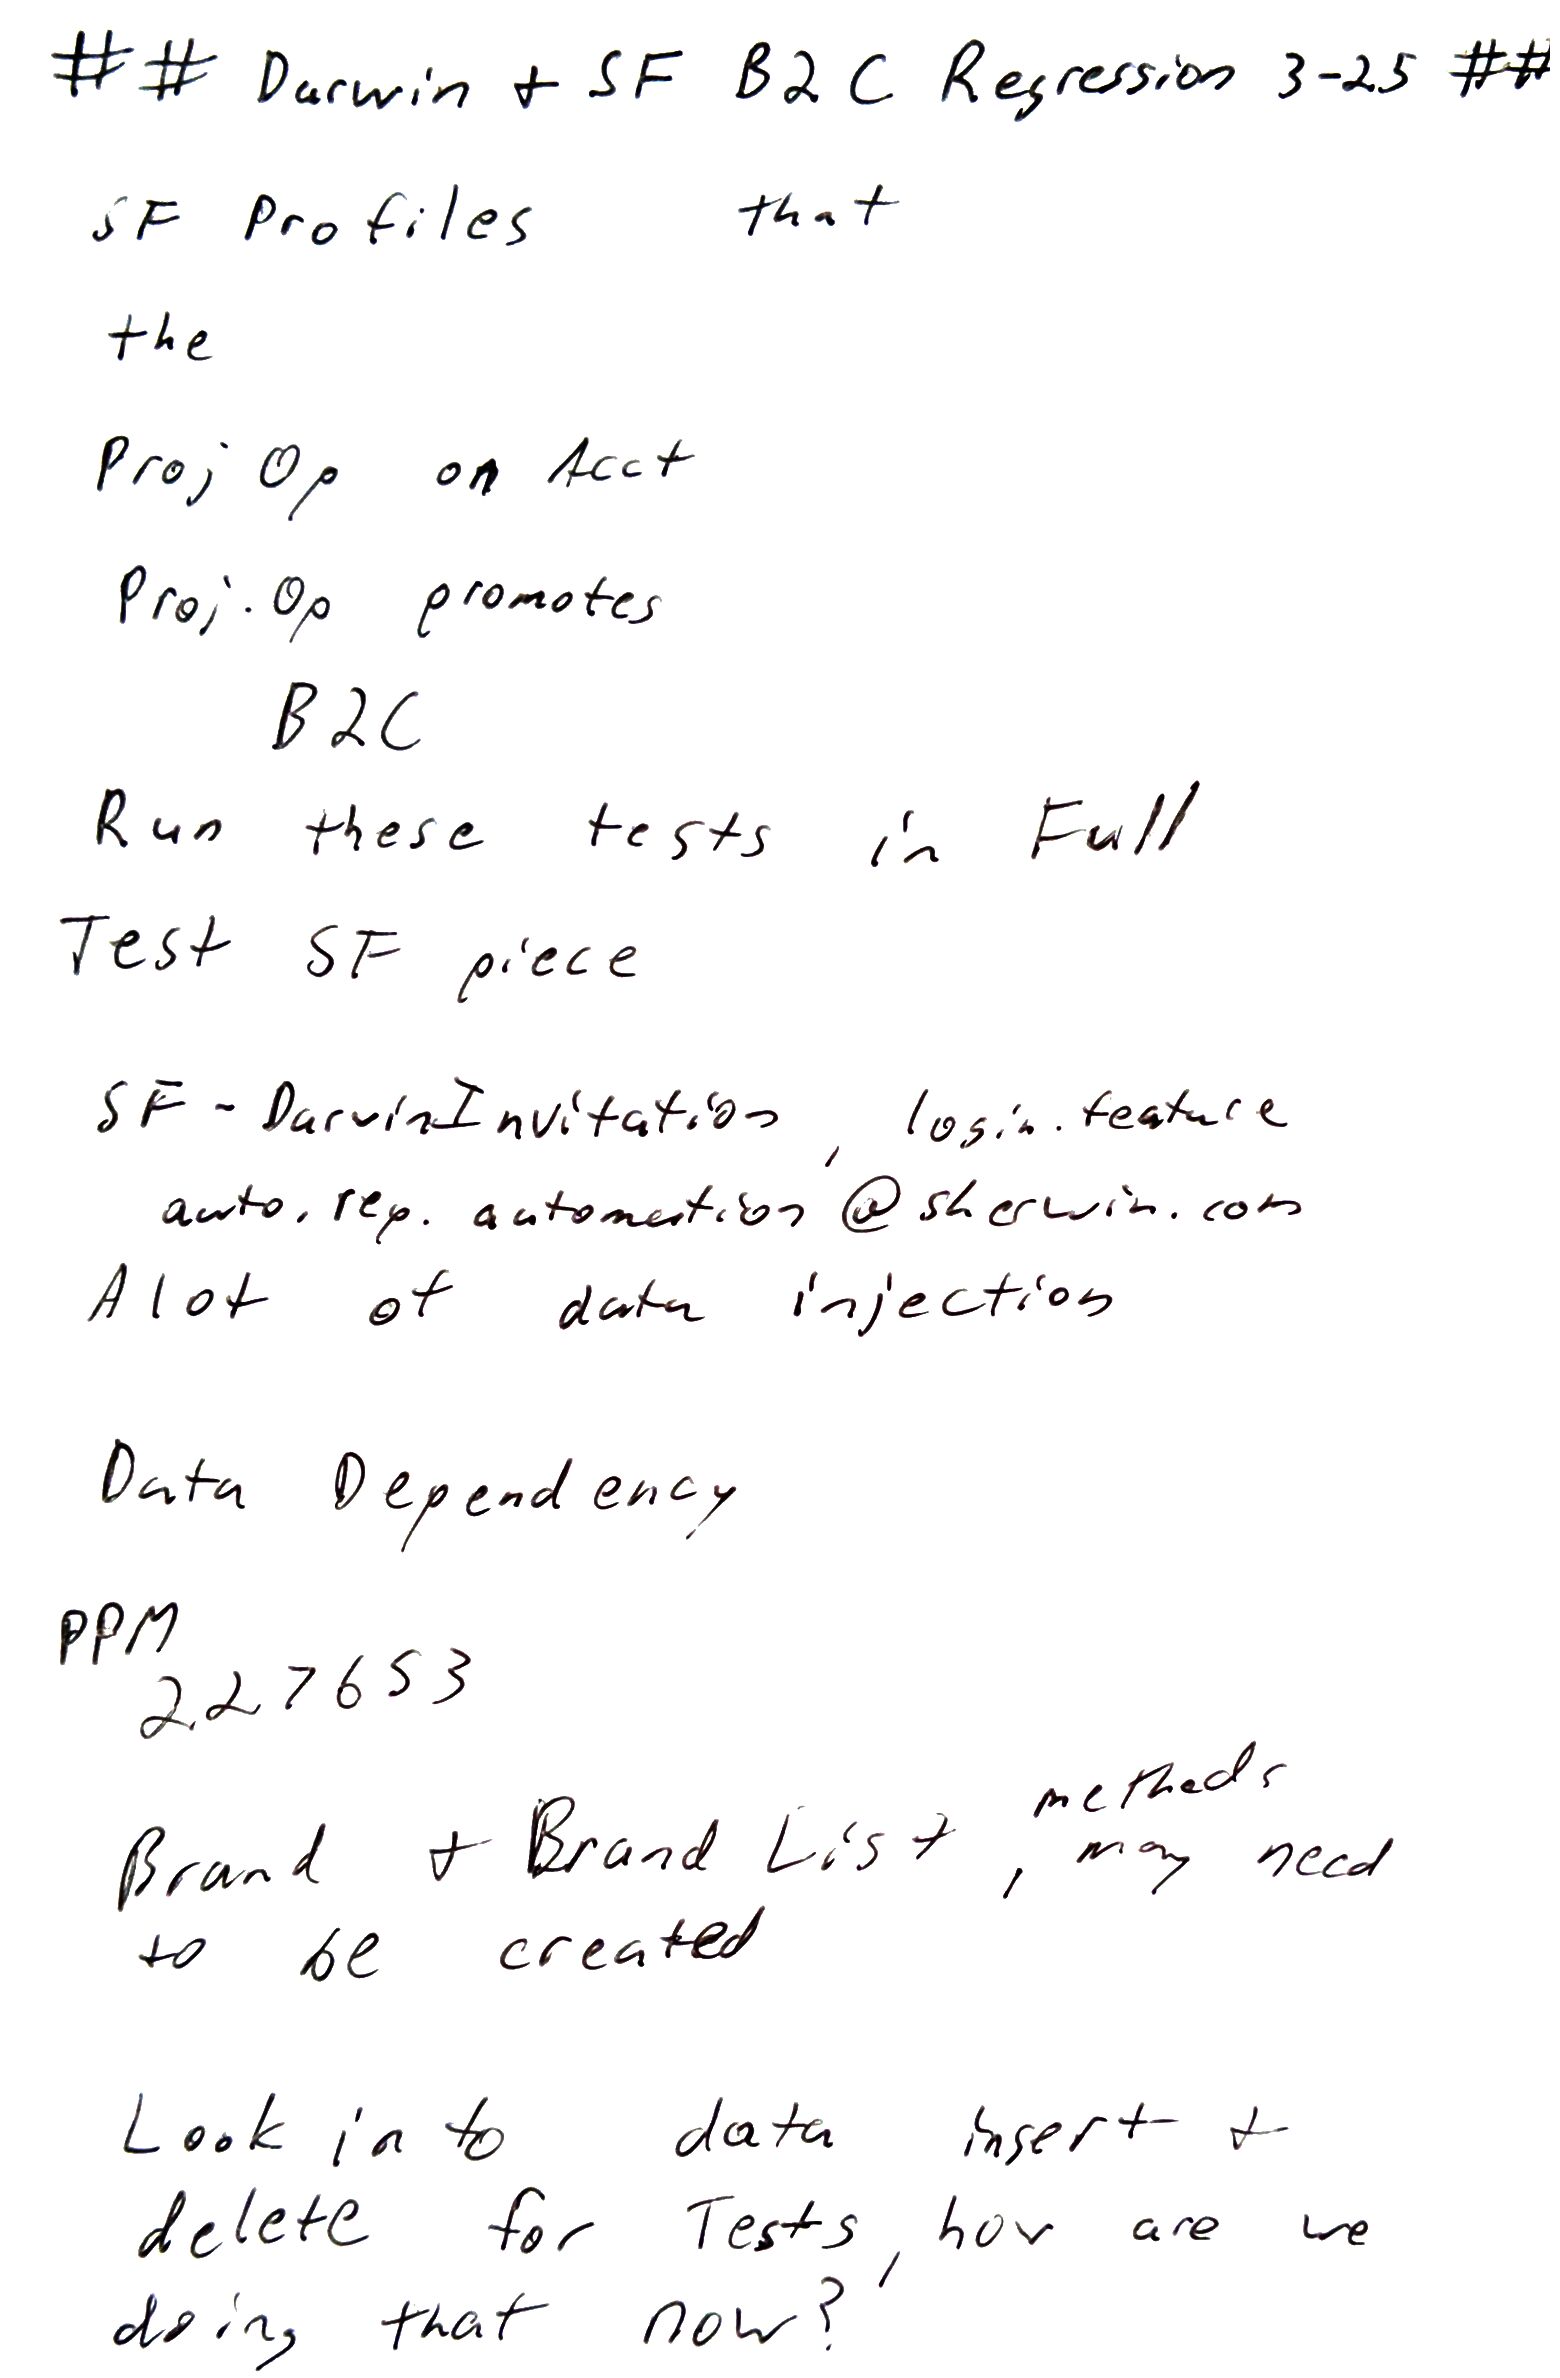 ## Darwin + SF B2C Regression 3-25 ##
SF Profiles that
the
Proj Op on Acct
Proj. Op promotes
B2C
Run these tests in Full
Test SF piece
SF - DarwinInvitation, login.feature
auto.rep.automation@sherwin.com
A lot of data injection
Data Dependency
PPM
227653
Brand + Brand List, methods may need
to be created
Look in to data insert +
delete for Tests, how are we
doing that now?